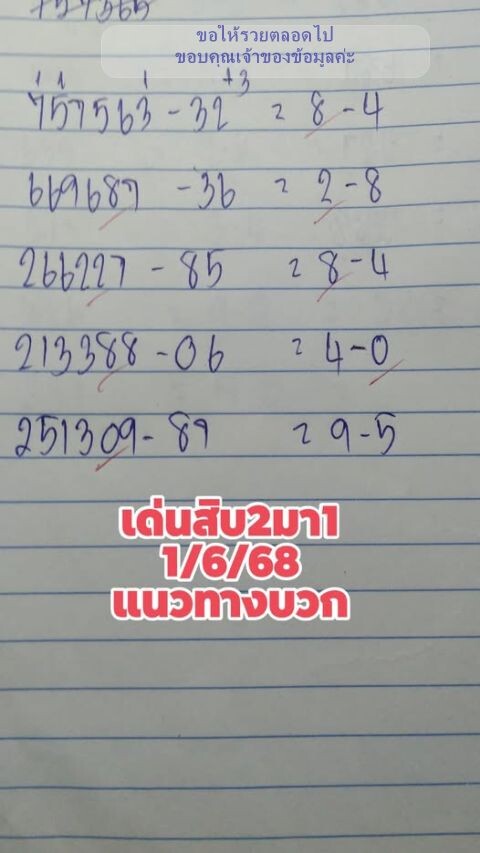 ขอให้รวยตลอดไป
ขอบคุณเจ้าของข้อมูลค่ะ
1 1 1 +3
757563 - 32 = 8 - 4
669687 - 36 = 2 - 8
266227 - 85 = 8 - 4
213388 - 06 = 4 - 0
251309 - 87 = 9 - 5
เด่นสิบ2มา1
1/6/68
แนวทางบวก